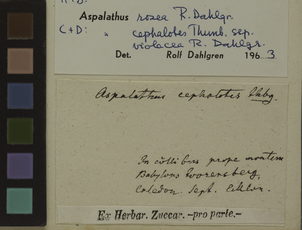 Aspalathus rosea R. Dahlgr.
C+D: " cephalotes Thunb. ssp.
violacea R. Dahlgr.
Det. Rolf Dahlgren 196 3.
Aspalathus cephalotes Thbg.
In collibus prope montem
Babylons Toorensberg,
Caledon. Sept. Ecklon.
Ex Herbar. Zuccar. —pro parte.—